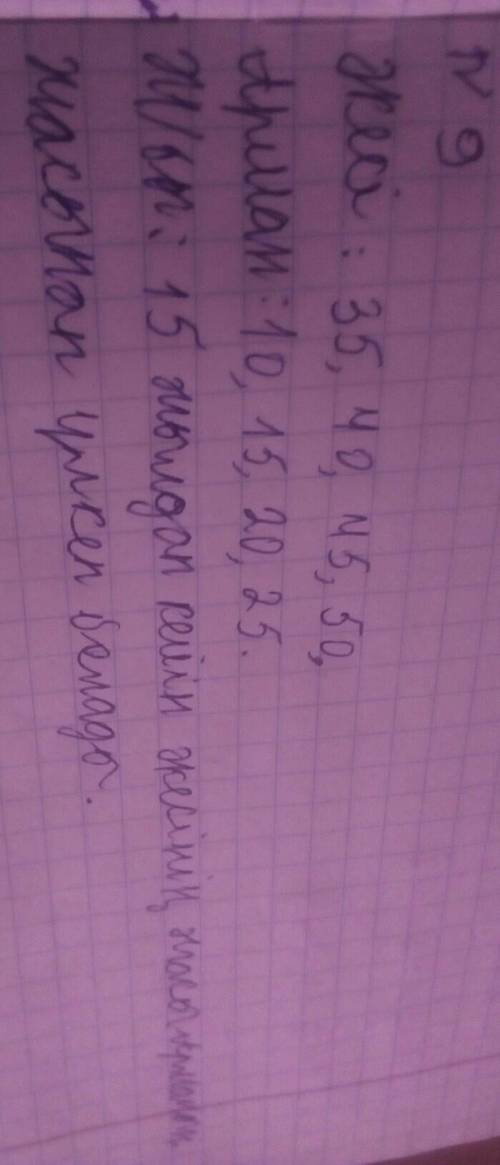 N 9
Әкесі : 35, 40, 45, 50,
Арман : 10, 15, 20, 25.
Ж/бы: 15 жылдан кейін әкесінің жасы Арманның
жасынан үлкен болады.